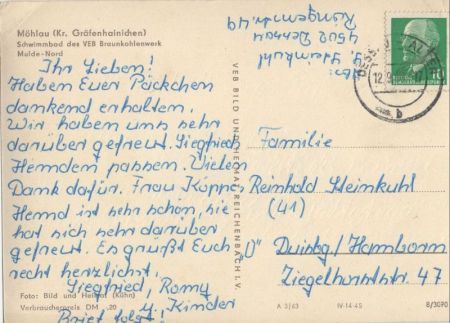 Möhlau (Kr. Gräfenhainichen)
Schwimmbad des VEB Braunkohlenwerk
Mulde-Nord
Ihr Lieben!
Haben Euer Päckchen
dankend erhalten.
Wir haben uns sehr
darüber gefreut. Siegfried
Hemden passen. Vielen
Dank dafür. Frau Küppe
Hemd ist sehr schön, sie
hat sich sehr darüber
gefreut. Es grüßt Euch
recht herzlichst.
Siegfried, Romy
u. Kinder
Brief folgt!
Foto: Bild und Heimat (Kühn)
Verbraucherpreis DM -,20
VEB BILD UND HEIMAT REICHENBACH I. V.
Abs:
S. Steinkuhl
4502 Dessau
49
10
12.9
b
Familie
Reinhold Steinkuhl
(41)
Duisbg/Hamborn
Ziegelhorststr. 47
A 3/63
IV-14-45
8/3090